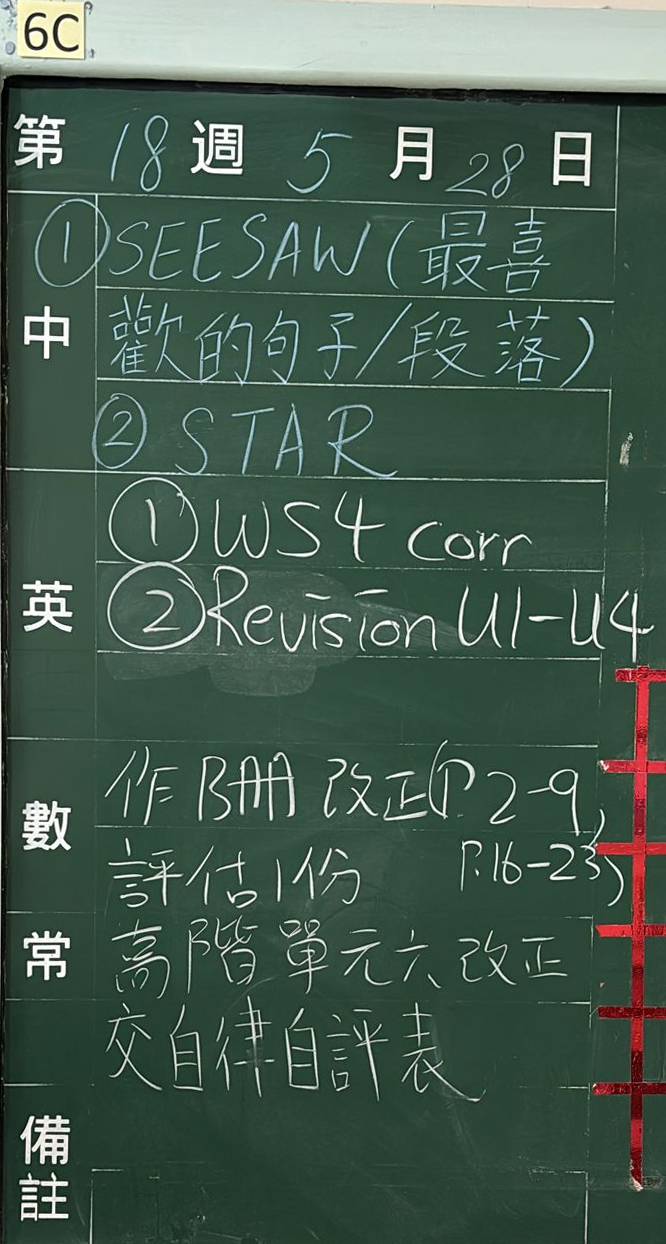 6C
第 18 週 5 月 28 日
中
①SEESAW(最喜
歡的句子/段落)
② STAR
英
①WS4 corr
②Revision U1-U4
數
作B冊 改正(P.2-9,
評估1份 P.16-23)
常
高階單元六改正
交自律自評表
備註